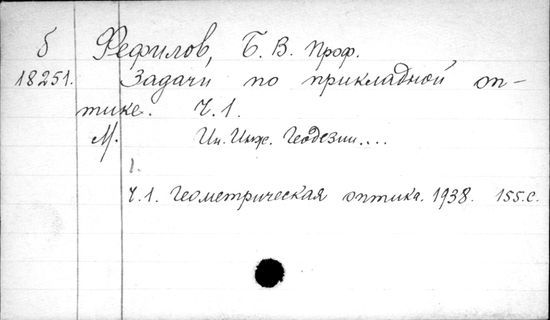 б Фефилов, Б. В. проф.
18251. Задачи по прикладной оп-
тике. Ч.1.
М. Ин. Инж. Геодезии....
1.
Ч.1. Геометрическая оптика. 1938. 155.с.